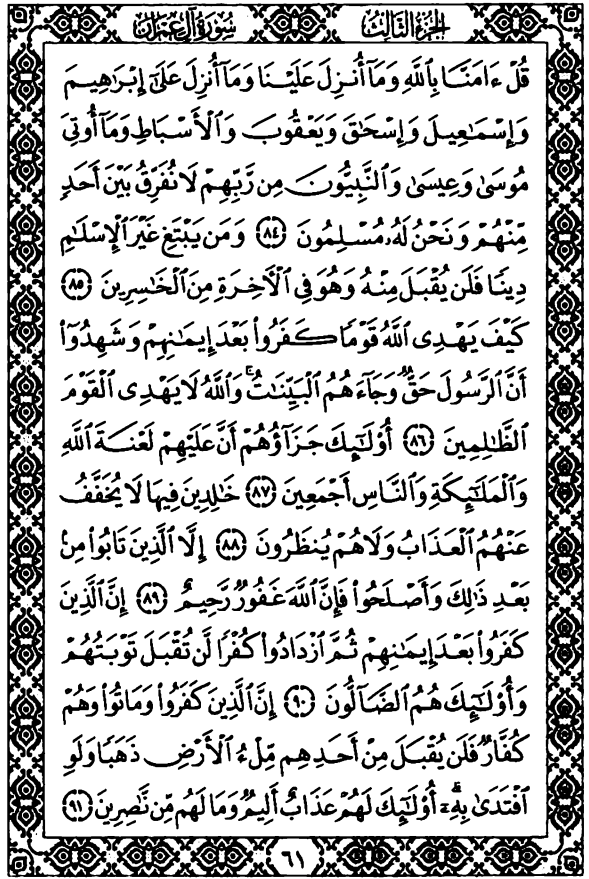 سُورَةُ آلِ عِمْرَانَ الجُزْءُ الثَّالِثُ
قُلْ ءَامَنَّا بِٱللَّهِ وَمَآ أُنزِلَ عَلَيْنَا وَمَآ أُنزِلَ عَلَىٰٓ إِبْرَٰهِيمَ
وَإِسْمَٰعِيلَ وَإِسْحَٰقَ وَيَعْقُوبَ وَٱلْأَسْبَاطِ وَمَآ أُوتِىَ
مُوسَىٰ وَعِيسَىٰ وَٱلنَّبِيُّونَ مِن رَّبِّهِمْ لَا نُفَرِّقُ بَيْنَ أَحَدٍ
مِّنْهُمْ وَنَحْنُ لَهُۥ مُسْلِمُونَ ٨٤ وَمَن يَبْتَغِ غَيْرَ ٱلْإِسْلَٰمِ
دِينًا فَلَن يُقْبَلَ مِنْهُ وَهُوَ فِى ٱلْءَاخِرَةِ مِنَ ٱلْخَٰسِرِينَ ٨٥
كَيْفَ يَهْدِى ٱللَّهُ قَوْمًا كَفَرُوا۟ بَعْدَ إِيمَٰنِهِمْ وَشَهِدُوٓا۟
أَنَّ ٱلرَّسُولَ حَقٌّ وَجَآءَهُمُ ٱلْبَيِّنَٰتُ ۚ وَٱللَّهُ لَا يَهْدِى ٱلْقَوْمَ
ٱلظَّٰلِمِينَ ٨٦ أُو۟لَٰٓئِكَ جَزَآؤُهُمْ أَنَّ عَلَيْهِمْ لَعْنَةَ ٱللَّهِ
وَٱلْمَلَٰٓئِكَةِ وَٱلنَّاسِ أَجْمَعِينَ ٨٧ خَٰلِدِينَ فِيهَا لَا يُخَفَّفُ
عَنْهُمُ ٱلْعَذَابُ وَلَا هُمْ يُنظَرُونَ ٨٨ إِلَّا ٱلَّذِينَ تَابُوا۟ مِنۢ
بَعْدِ ذَٰلِكَ وَأَصْلَحُوا۟ فَإِنَّ ٱللَّهَ غَفُورٌ رَّحِيمٌ ٨٩ إِنَّ ٱلَّذِينَ
كَفَرُوا۟ بَعْدَ إِيمَٰنِهِمْ ثُمَّ ٱزْدَادُوا۟ كُفْرًا لَّن تُقْبَلَ تَوْبَتُهُمْ
وَأُو۟لَٰٓئِكَ هُمُ ٱلضَّآلُّونَ ٩٠ إِنَّ ٱلَّذِينَ كَفَرُوا۟ وَمَاتُوا۟ وَهُمْ
كُفَّارٌ فَلَن يُقْبَلَ مِنْ أَحَدِهِم مِّلْءُ ٱلْأَرْضِ ذَهَبًا وَلَوِ
ٱفْتَدَىٰ بِهِۦٓ ۗ أُو۟لَٰٓئِكَ لَهُمْ عَذَابٌ أَلِيمٌ وَمَا لَهُم مِّن نَّٰصِرِينَ ٩١
٦١